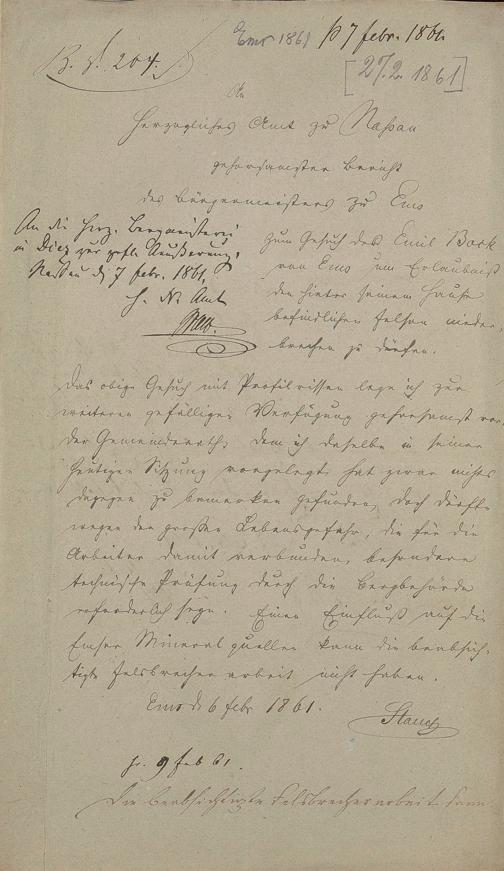 Ems 1861 pr 7 febr. 1861.
B. V. 204.
[27.2.1861]
An
Herzogliches Amt zu Nassau
gehorsamster Bericht
des Bürgermeisters zu Ems
zum Gesuch des Emil Bock
von Ems um Erlaubniß
den hinter seinem Hause
befindlichen Felsen nieder,
brechen zu dürfen.
An die Herz. Bergmeisterei
in Diez zur gefl. Aeußerung.
Nassau d. 7 febr. 1861.
H. N. Amt
Das obige Gesuch mit Profilrissen lege ich zur
weiteren gefälligen Verfügung gehorsamst vor.
Der Gemeinderath, dem ich daselbe in seiner
heutigen Sitzung vorgelegt, hat zwar nichts
dagegen zu bemerken gefunden, doch dürfte
wegen der großen Lebensgefahr, die für die
Arbeiter damit verbunden, besondere
technische Prüfung durch die Bergbehörde
erforderlich seyn. Einen Einfluß auf die
Emser Mineralquellen kann die beabsich-
tigte Felsbrecherarbeit nicht haben.
Ems d 6 febr 1861.
pr. 9 feb 61.
Die beabsichtigte Felsbrecherarbeit kann